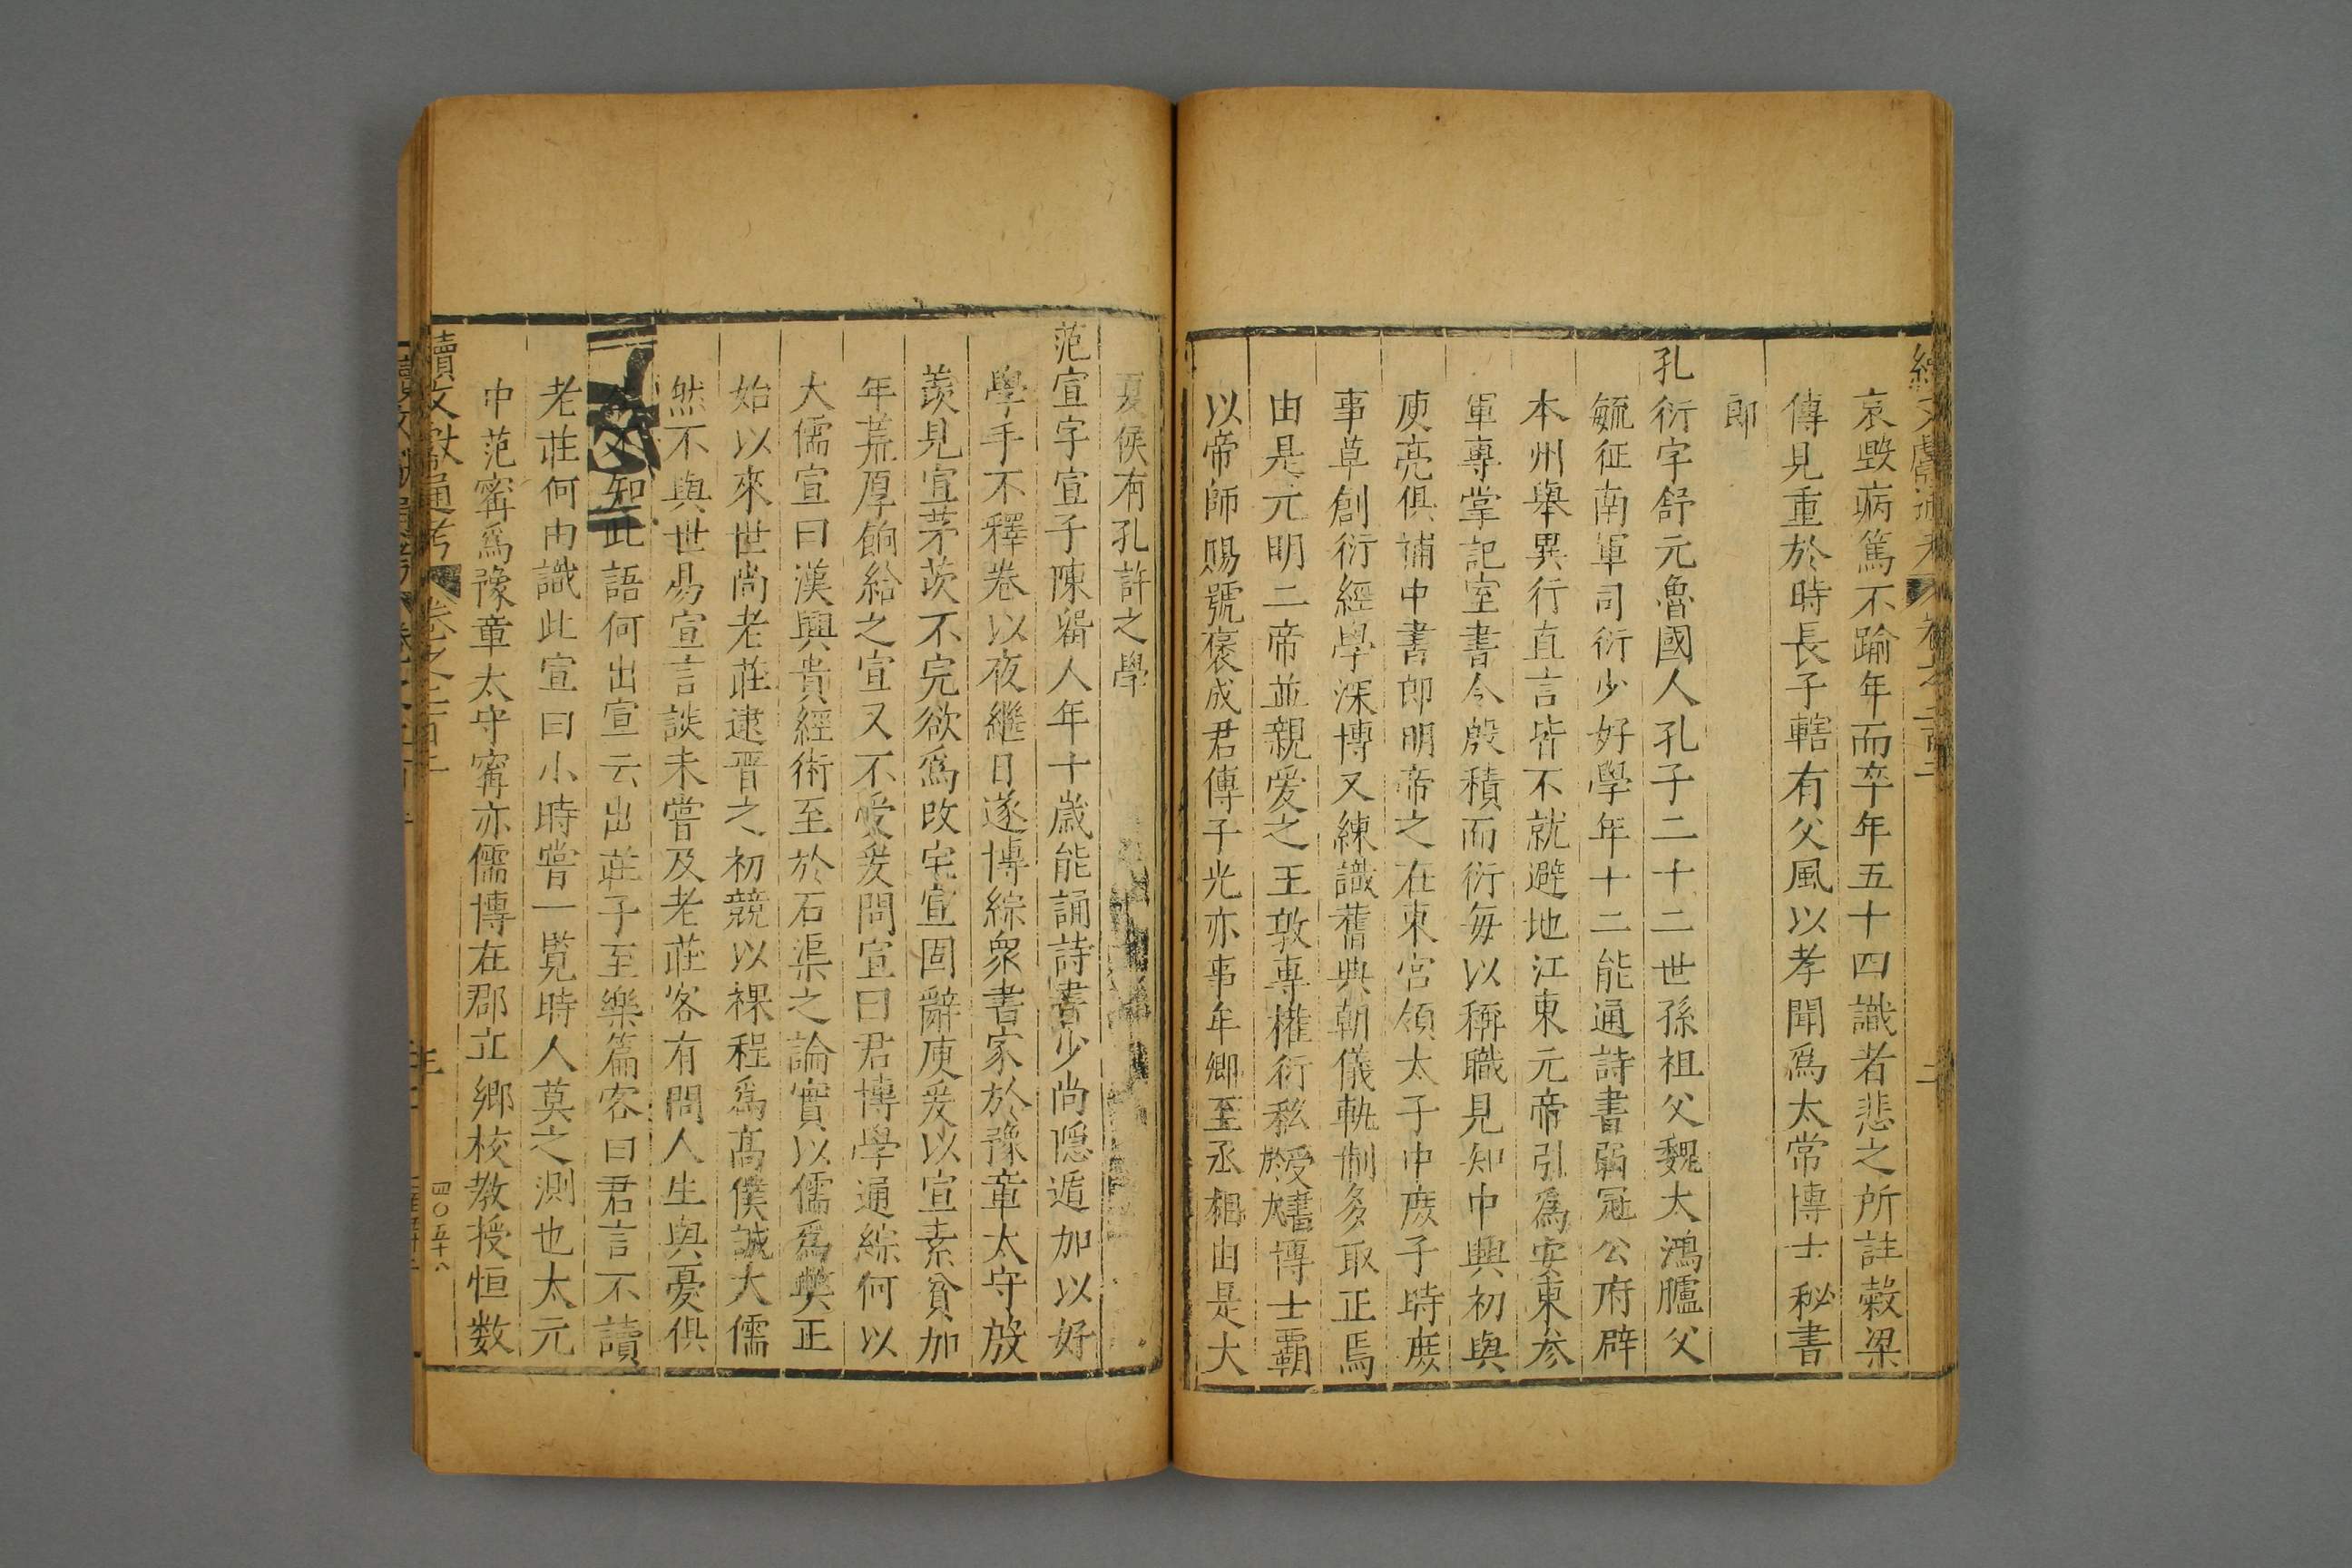 哀毀病篤不踰年而卒年五十四識者悲之所註榖梁
傳見重於時長子轄有父風以孝聞爲太常博士秘書
郎
孔衍字舒元魯國人孔子二十二世孫祖父魏太鴻臚父
毓征南軍司衍少好學年十二能通詩書弱冠公府辟
本州舉異行直言皆不就避地江東元帝引爲安東参
軍專掌記室書令殷積而衍每以稱職見知中興初與
庾亮俱補中書郎明帝之在東宮領太子中庶子時庶
事草創衍經學深博又練識舊典朝儀軌制多取正焉
由是元明二帝並親爱之王敦專權衍私
以帝師賜號褒成君傳子光亦事年卿至丞相由是大
夏侯有孔許之學
范宣字宣子陳留人年十歲能誦詩書少尚隱遁加以好
學手不釋卷以夜繼日遂博綜眾書家於豫章太守放
羨見宣茅茨不完欲爲改宅宣固辭庾爰以宣素貧加
年荒厚餉給之宣又不受爰問宣曰君博學通綜何以
大儒宣曰漢興貴經術至於石渠之論實以儒爲獘正
始以來世尚老莊逮晉之初競以裸程爲高僕誠大儒
然不與世易宣言談未嘗及老莊客有問人生與憂俱
知此語何出宣云出莊子至樂篇客曰君言不讀
老莊何由識此宣曰小時嘗一覽時人莫之測也太元
中范甯爲豫章太守甯亦儒博在郡立鄉校教授恒数
續文獻通考 卷之二百二 三 四〇五十八